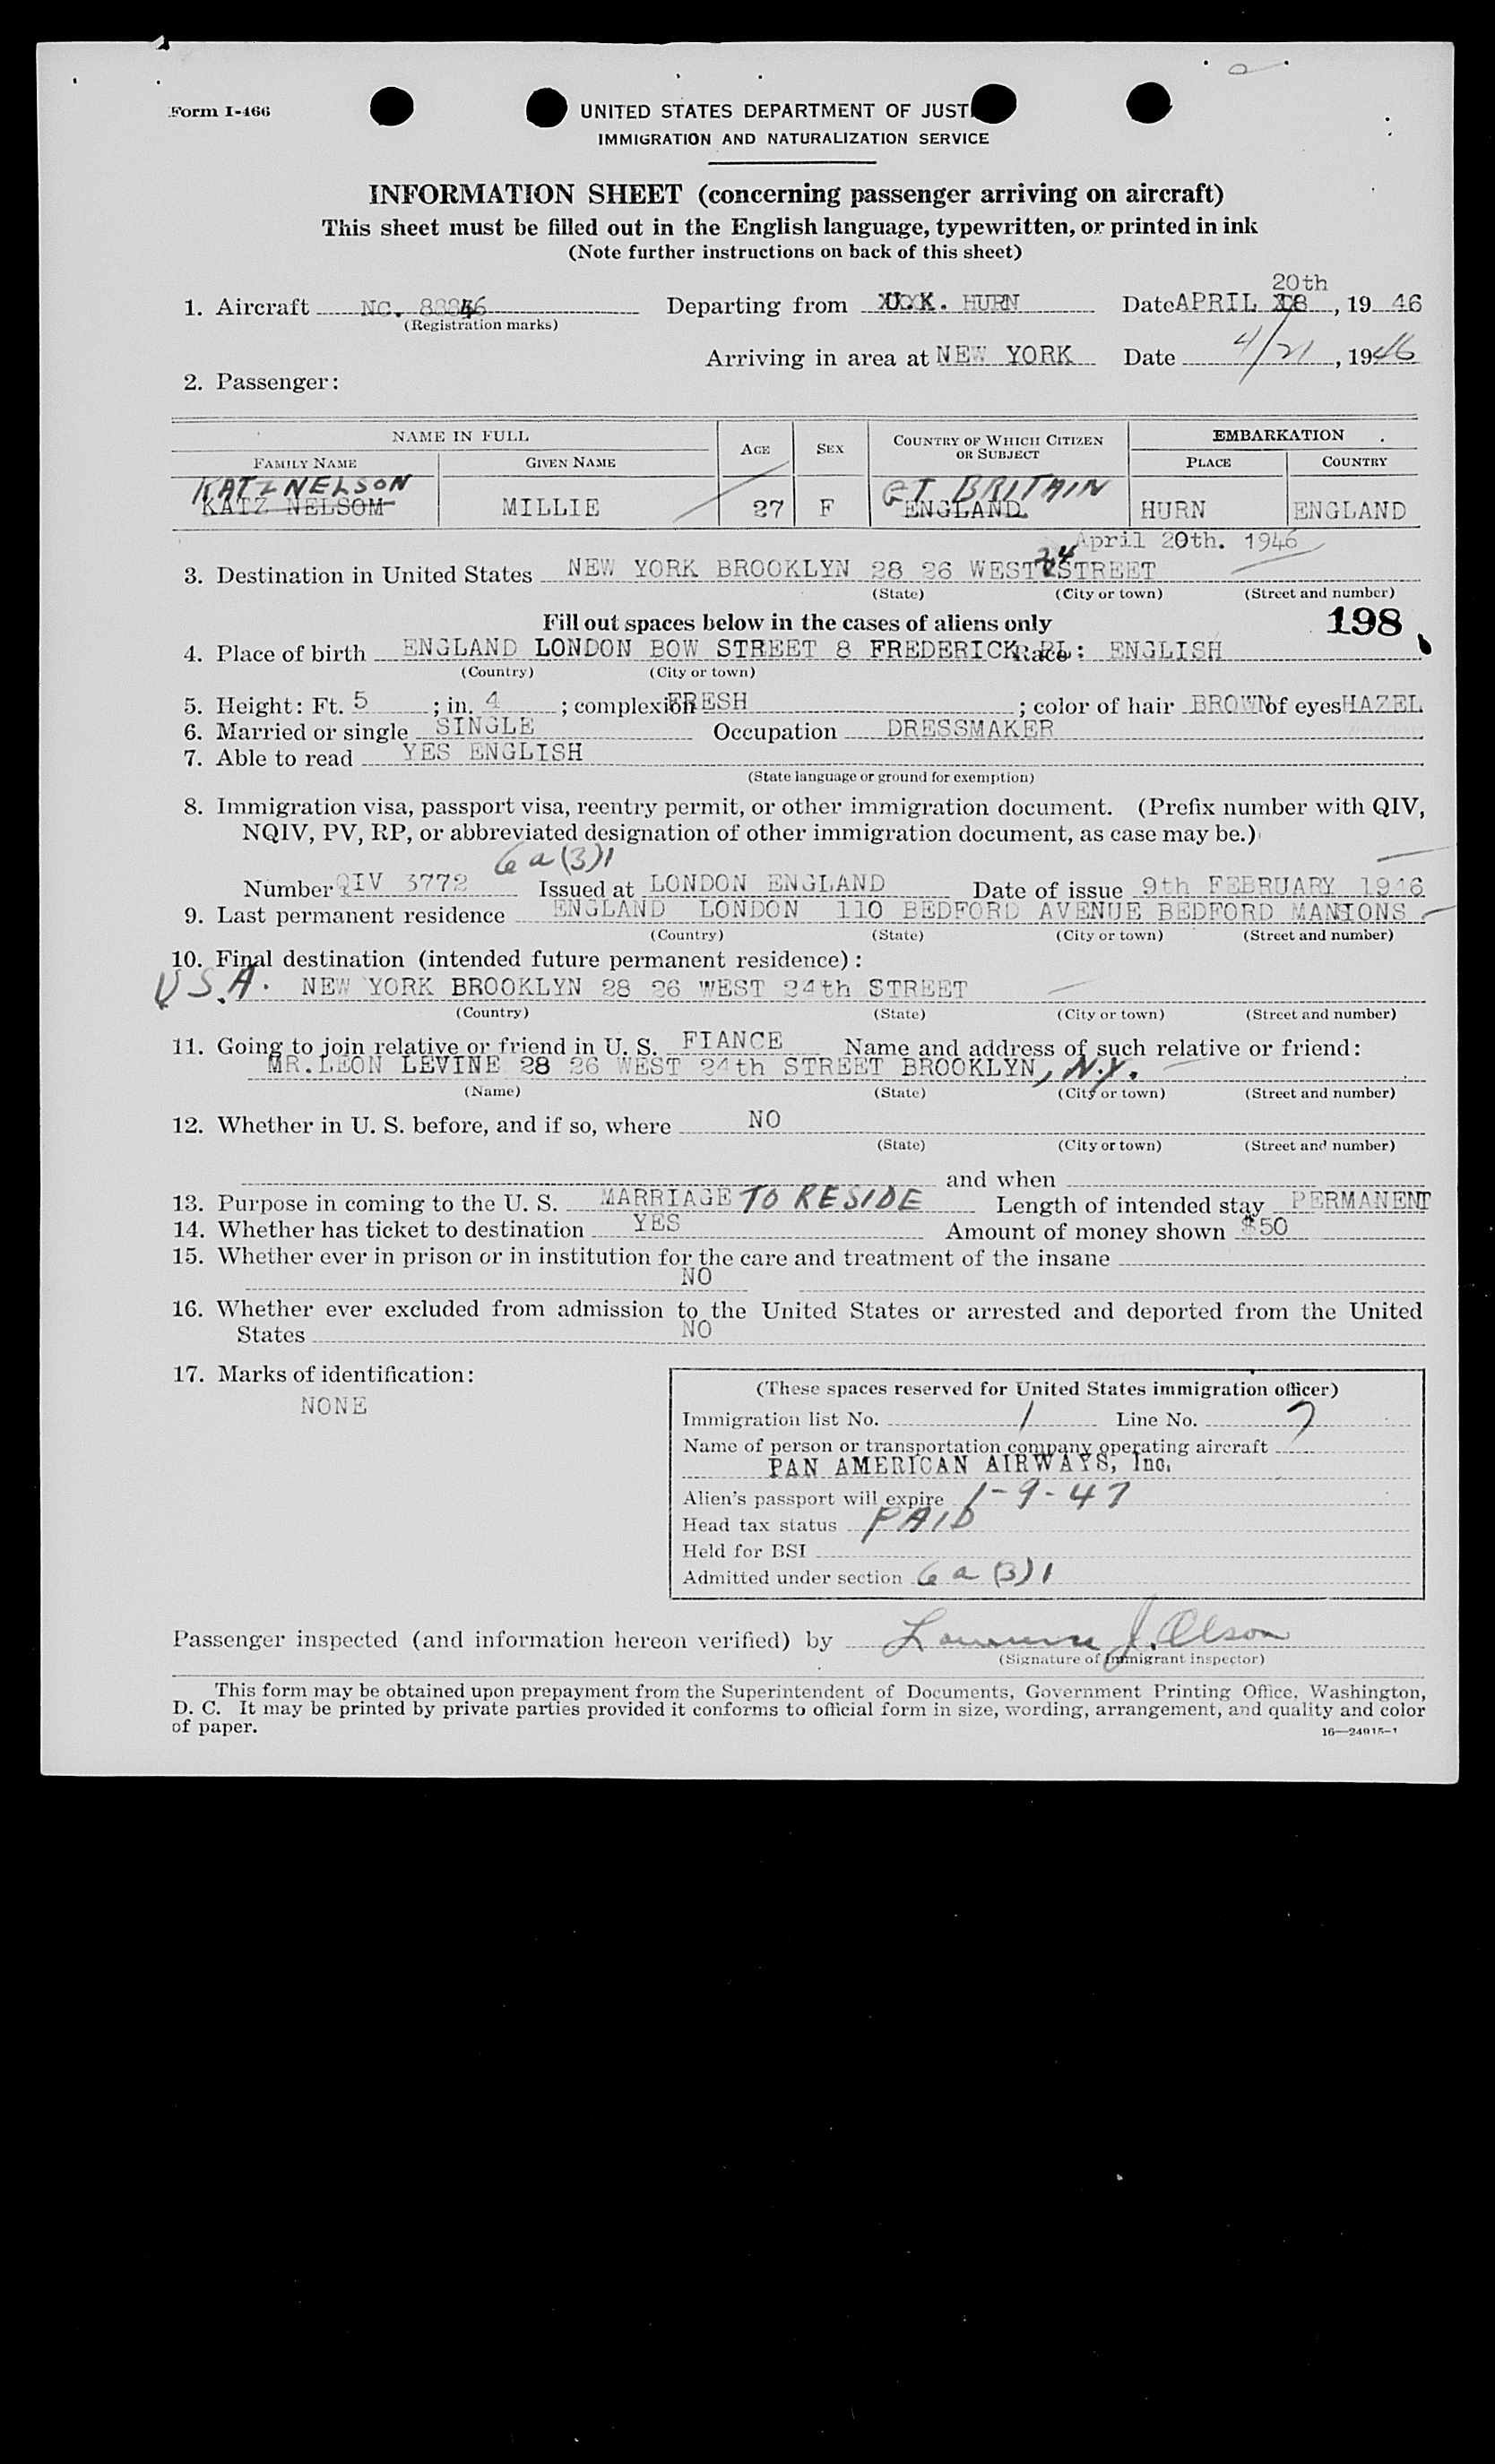 Form I-466
UNITED STATES DEPARTMENT OF JUST
IMMIGRATION AND NATURALIZATION SERVICE
INFORMATION SHEET (concerning passenger arriving on aircraft)
This sheet must be filled out in the English language, typewritten, or printed in ink
(Note further instructions on back of this sheet)
20th
1. Aircraft NC. Departing from U.K. HURN Date APRIL 18, 19 46
(Registration marks)
Arriving in area at NEW YORK Date 4/21, 1946
2. Passenger:
NAME IN FULL AGE SEX COUNTRY OF WHICH CITIZEN OR SUBJECT EMBARKATION
FAMILY NAME GIVEN NAME PLACE COUNTRY
KATZNELSON GT BRITAIN
KATZ NELSOM MILLIE 27 F ENGLAND. HURN ENGLAND
April 20th. 1946
3. Destination in United States NEW YORK BROOKLYN 28 26 WEST 24 STREET
(State) (City or town) (Street and number)
Fill out spaces below in the cases of aliens only 198
4. Place of birth ENGLAND LONDON BOW STREET 8 FREDERICK PL: Race ENGLISH
(Country) (City or town)
5. Height: Ft. 5; in. 4; complexion FRESH; color of hair BROWN of eyes HAZEL
6. Married or single SINGLE Occupation DRESSMAKER
7. Able to read YES ENGLISH
(State language or ground for exemption)
8. Immigration visa, passport visa, reentry permit, or other immigration document. (Prefix number with QIV,
NQIV, PV, RP, or abbreviated designation of other immigration document, as case may be.)
6a(3)1
Number QIV 3772 Issued at LONDON ENGLAND Date of issue 9th FEBRUARY 1946
9. Last permanent residence ENGLAND LONDON 110 BEDFORD AVENUE BEDFORD MANSIONS
(Country) (State) (City or town) (Street and number)
10. Final destination (intended future permanent residence):
U S.A. NEW YORK BROOKLYN 28 26 WEST 24th STREET
(Country) (State) (City or town) (Street and number)
11. Going to join relative or friend in U. S. FIANCE Name and address of such relative or friend:
MR.LEON LEVINE 28 26 WEST 24th STREET BROOKLYN, N.Y.
(Name) (State) (City or town) (Street and number)
12. Whether in U. S. before, and if so, where NO
(State) (City or town) (Street and number)
and when
13. Purpose in coming to the U. S. MARRIAGE TO RESIDE Length of intended stay PERMANENT
14. Whether has ticket to destination YES Amount of money shown $50
15. Whether ever in prison or in institution for the care and treatment of the insane
NO
16. Whether ever excluded from admission to the United States or arrested and deported from the United
States NO
17. Marks of identification:
NONE
(These spaces reserved for United States immigration officer)
Immigration list No. 1 Line No. 7
Name of person or transportation company operating aircraft
PAN AMERICAN AIRWAYS, Inc.
Alien's passport will expire 1-9-47
Head tax status PAID
Held for BSI
Admitted under section 6a(3)1
Passenger inspected (and information hereon verified) by Lawrence J. Olson
(Signature of immigrant inspector)
This form may be obtained upon prepayment from the Superintendent of Documents, Government Printing Office, Washington,
D. C. It may be printed by private parties provided it conforms to official form in size, wording, arrangement, and quality and color
of paper.
16—24915-1